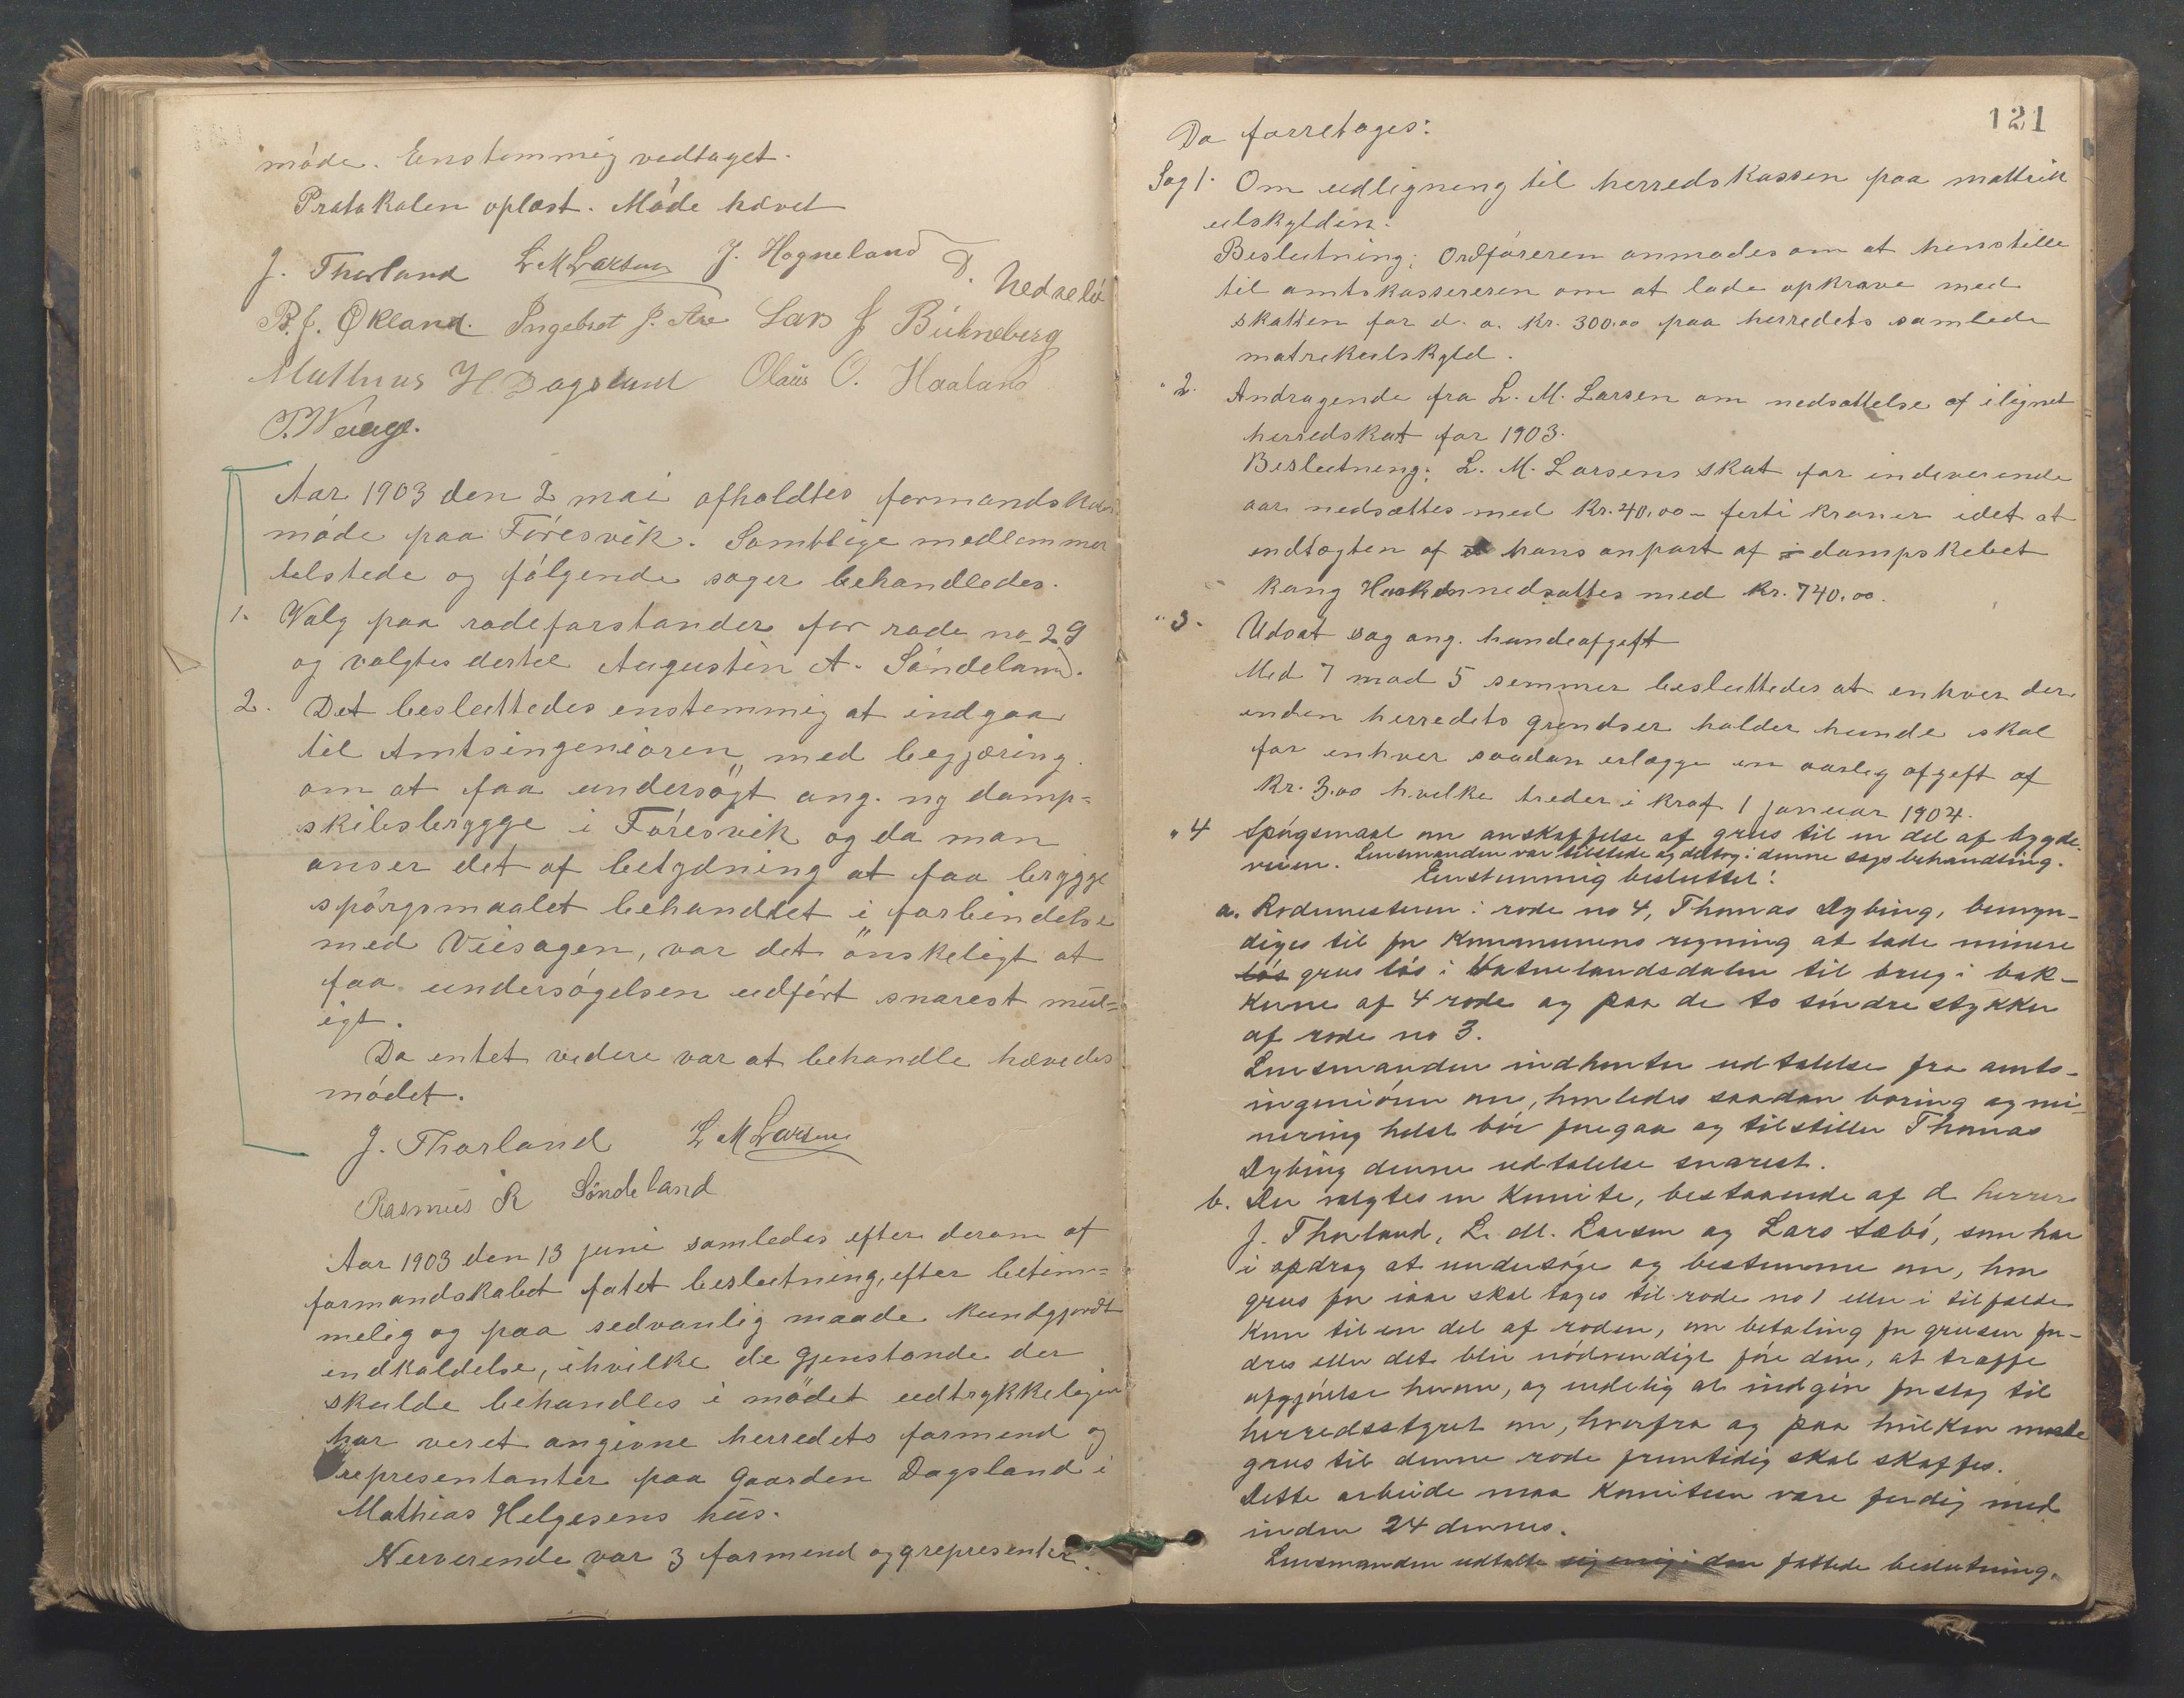 möde. Enstemmig vedtaget.
Protokolen oplæst. Möde hævet
J. Thorland L M Larsen J. Hogneland D. Nedrebö
B. J. Økland. Ingebret J. Aee Lars J
Mathias H Dagsland Olaus O. Haaland
Aar 1903 den 2 mai afholdtes formandskabs
möde paa Föresvik. Samtlige medlemmer
telstede og fölgende sager behandledes.
1. Valg paa rodeforstander for rode no 29
og valgtes dertil Augustin A. Söndeland.
2. Det besluttedes enstemmig at indgaa
til Amtsingeniören med begjæring
om at faa undersögt ang. ny damp=
skibsbrygge i Föresvik og da man
anser det af betydning at faa brygge
spörgsmaalet behandlet i forbindelse
med Veisagen, var det önskeligt at
faa undersögelsen udfört snarest mul=
igt.
Da entet videre var at behandle hævedes
mödet.
J. Thorland L M Larsen
Rasmus R Söndeland
Aar 1903 den 13 juni samledes efter derom af
formandskabet fatet beslutning, efter betim=
melig og paa sedvanlig maade kundgjordt
endkaldelse, ihvilke de gjenstande der
skulde behandles i mödet udtrykkeligen
har veret angivne herredets formend og
representanter paa Gaarden Dagsland i
Mathias Helgesens hus.
Nerverende var 3 formend og 9 representer.
121
Da forretoges:
Sag 1. Om udligning til herredskassen paa mattrik
ulskylden.
Beslutning: Ordföreren anmodes om at henstille
til amtskassereren om at lade opkræve med
skatten for d. a. Kr. 300.00 paa herredets samlede
matrikulskyld.
" 2. Andragende fra L. M. Larsen om nedsættelse af ilignet
herredskat for 1903.
Beslutning: L. M. Larsens skat for indeverende
aar nedsættes med Kr. 40.00 - ferti kroner idet at
endtægten af hans anpart af i dampskebet
kong Haakon nedsattes med Kr. 740.00.
" 3. Udsat sag ang. hundeafgeft
Med 7 mod 5 semmer besluttedes at enhver der
enden herredets grendser holder hunde skal
for enhver saadan erlægge en aarlig afgeft af
Kr. 3.00 hvilke treder i kraf 1 januar 1904.
" 4 Spögsmaal om anskaffelse af grus til en del af bygde
veien. Lensmanden var tilstede og deltog i denne sags behandling.
Enstemmig besluttet:
a. Rodemesteren i rode no 4, Thomas Dybing, bemyn-
diges til for kommunens regning at lade minere
lös grus lös i Vatnelandsdalen til brug i bak-
kene af 4 rode og paa de to söndre stykker
af rode no 3.
Lensmanden indhenter udtalelse fra amts-
ingeniören om, hvorledes saadan boring og mi-
nering helst bör foregaa og tilstiller Thomas
Dybing denne udtalelse snarest.
b. Der valgtes en komite, bestaaende af d herrer
J. Thorland, L. M. Larsen og Lars Sæbö, som har
i opdrag at undersöge og bestemme om, hvor
grus for iaar skal tages til rode no 1 eller i tilfælde
kun til en del af roden, om betaling for grusen for-
dres eller det blir nödvendigt före den, at træffe
afgjörelse herom, og endelig at indgive forslag til
herredsstyret om, hvorfra og paa hvilken maade
grus til denne rode fremtidig skal skaffes.
Dette arbeide maa komiteen være ferdig med
inden 24 dennes.
Lensmanden udtalte sig enig i den fattede beslutning.